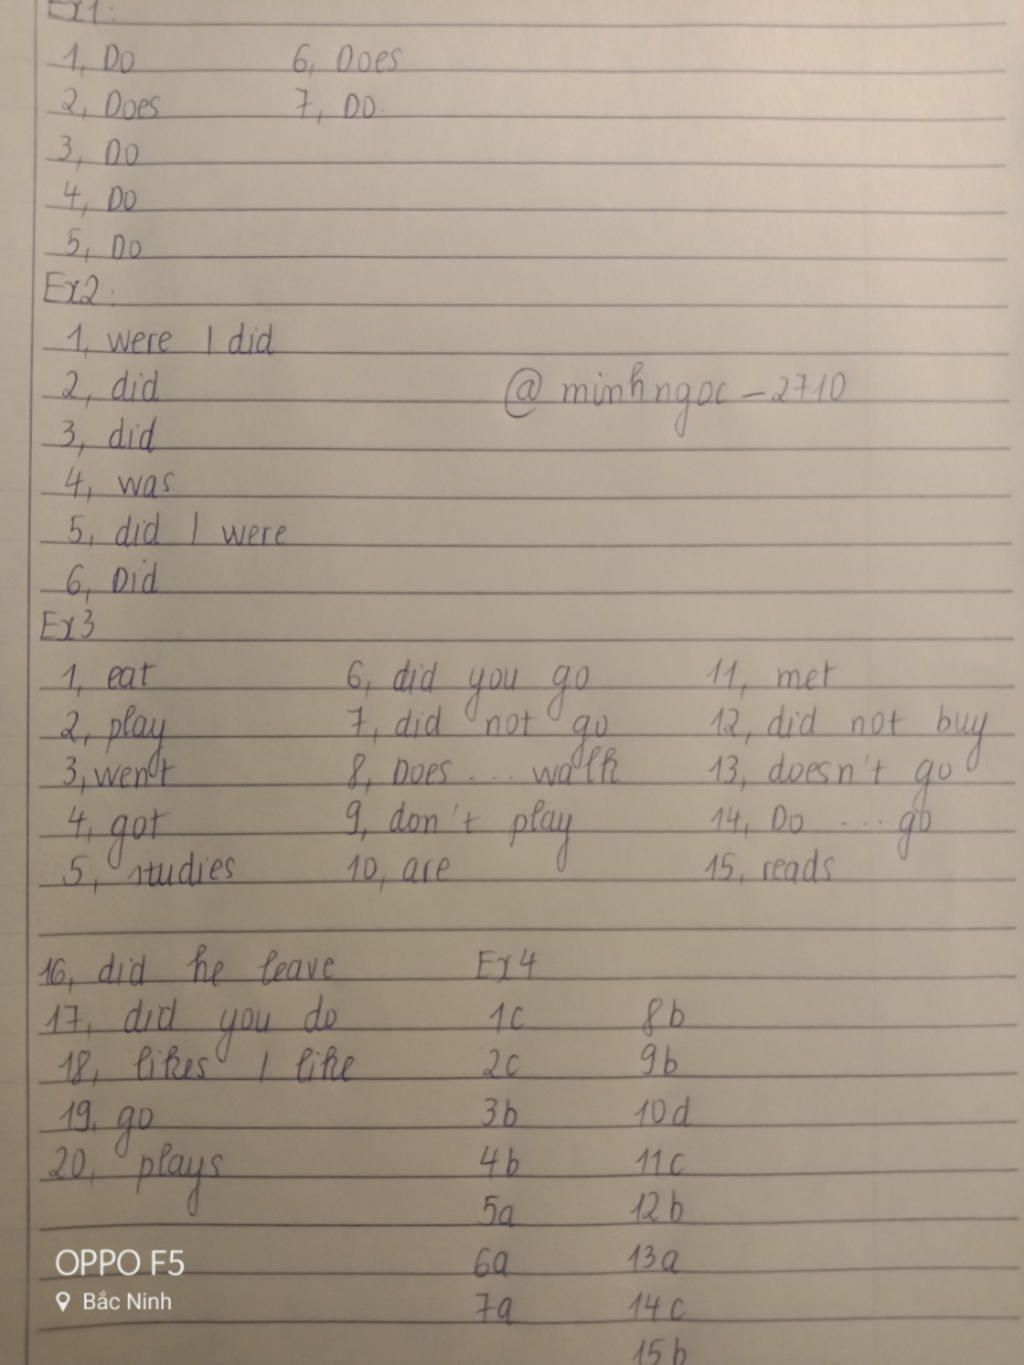 Ex1:
1, Do 6, Does
2, Does 7, Do.
3, Do
4, Do
5, Do
Ex2:
1, were / did
2, did @minhngoc-2710
3, did
4, was
5, did / were
6, Did
Ex3
1, eat 6, did you go 11, met
2, play 7, did not go 12, did not buy
3, went 8, Does ... walk 13, doesn't go
4, got 9, don't play 14, Do ... go
5, studies 10, are 15, reads
16, did he leave Ex4
17, did you do 1c 8b
18, likes / like 2c 9b
19, go 3b 10d
20, plays 4b 11c
5a 12b
OPPO F5 6a 13a
Bắc Ninh 7a 14c
15b